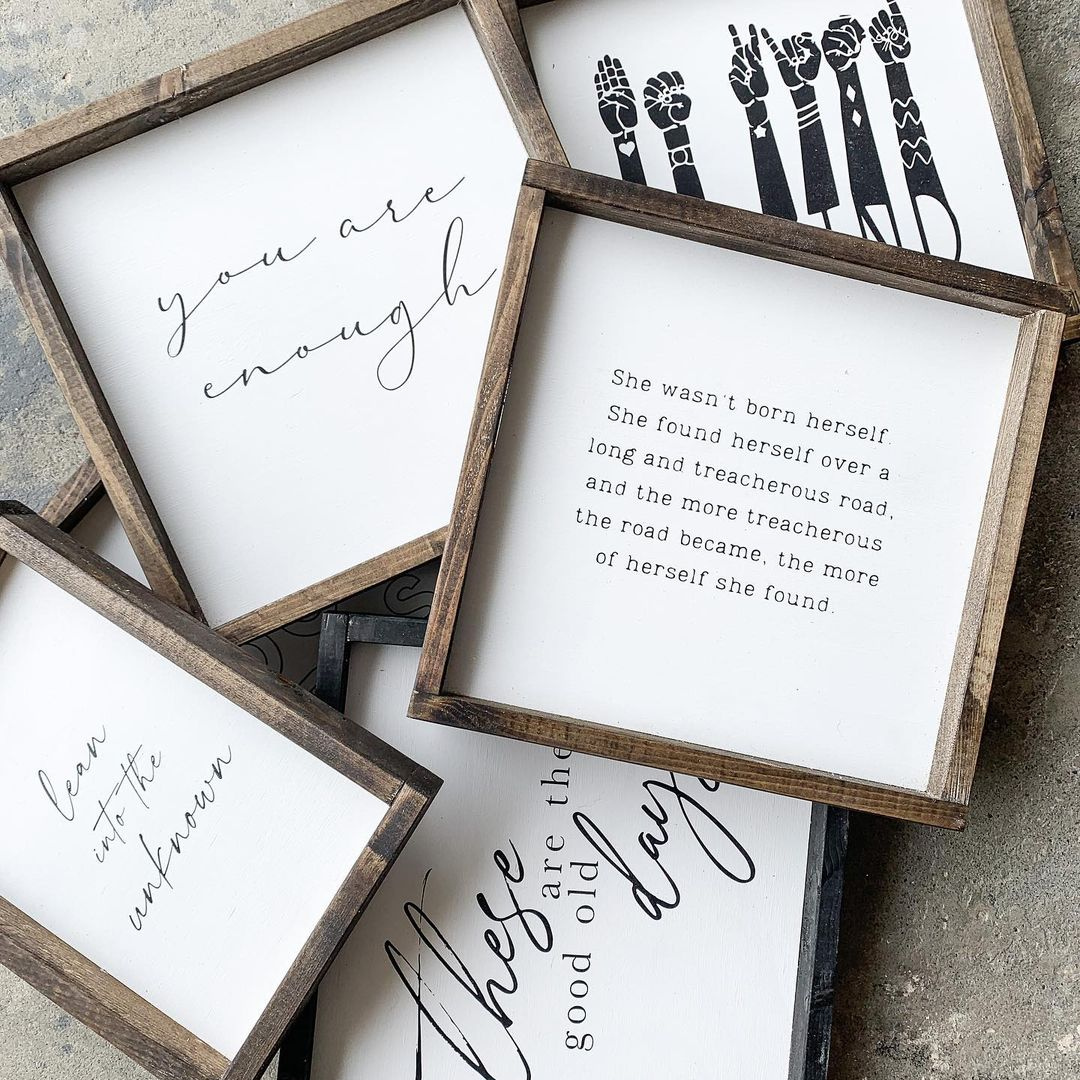 you are
enough
IND
She wasn't born herself.
She found herself over a
long and treacherous road,
and the more treacherous
the road became, the more
of herself she found.
lean
into the
unknown
these
are the
good old
days